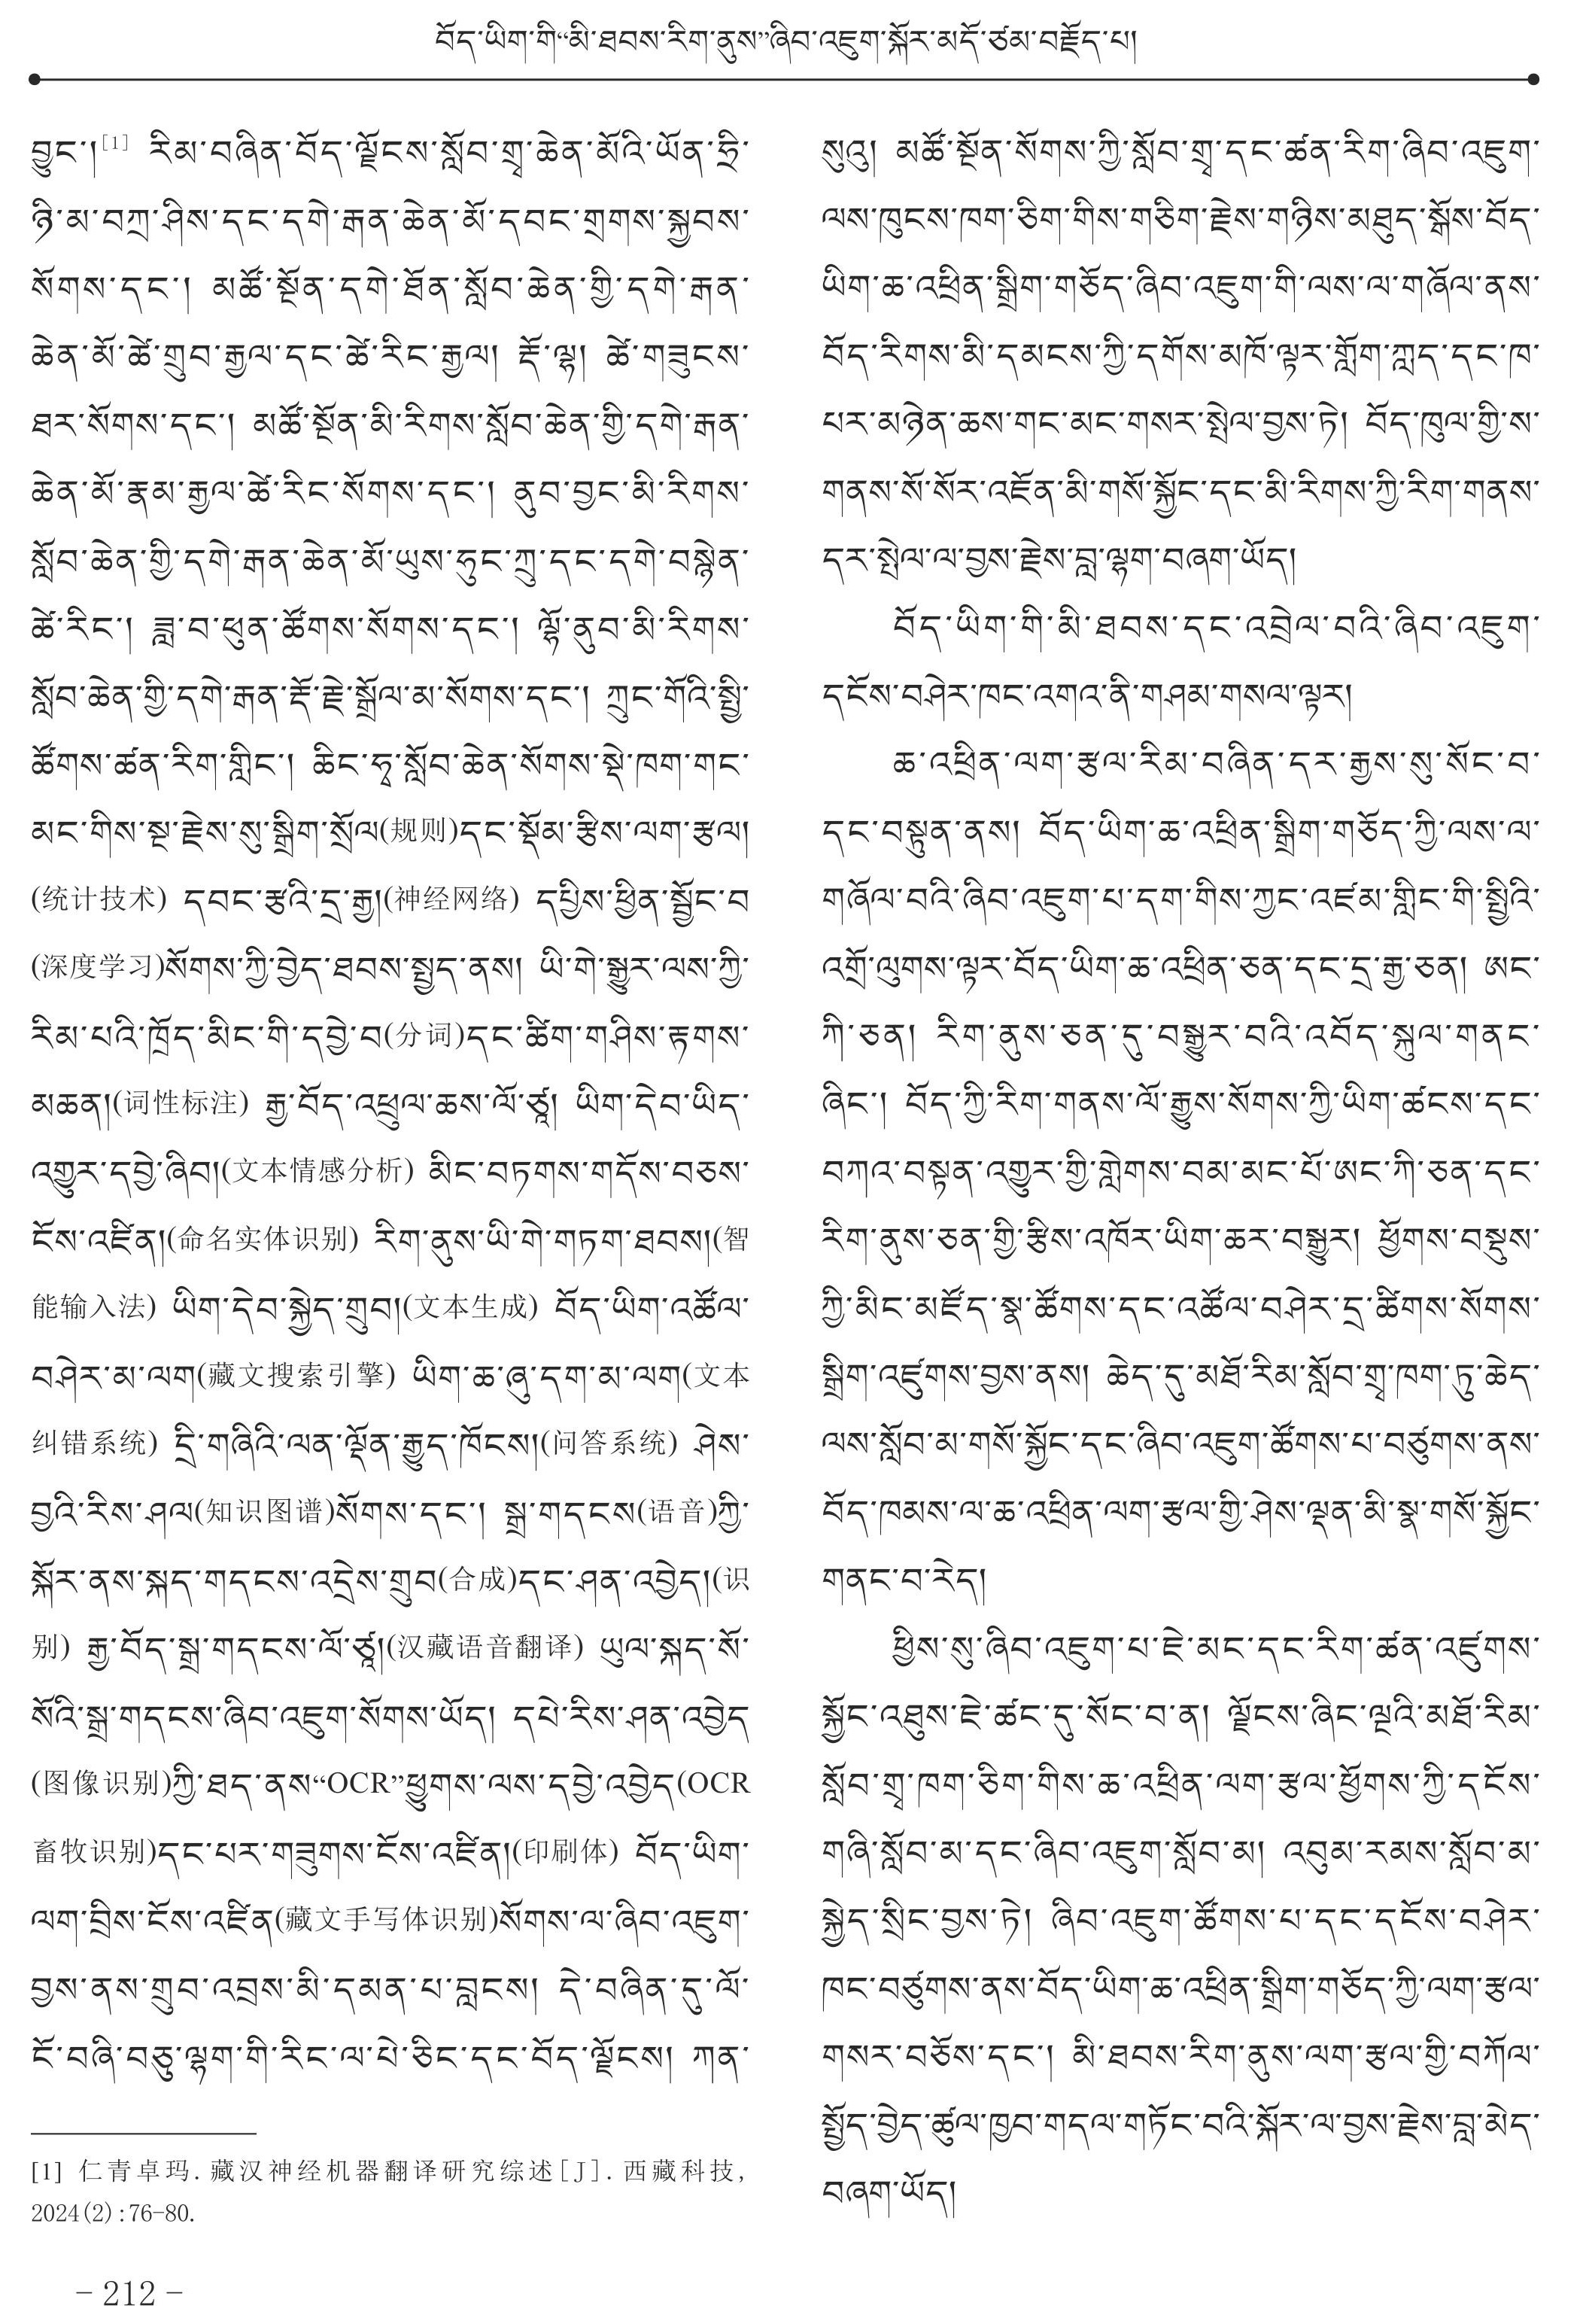 བོད་ཡིག་གི“མི་ཐབས་རིག་ནུས”ཞིབ་འཇུག་སྐོར་མདོ་ཙམ་བརྗོད་པ།
བྱུང་།[1] རིམ་བཞིན་བོད་ལྗོངས་སློབ་གྲྭ་ཆེན་མོའི་ཡོན་ཏྲི་
ཉི་མ་བཀྲ་ཤིས་དང་དགེ་རྒན་ཆེན་མོ་དབང་གྲགས་སྐྱབས་
སོགས་དང་། མཚོ་སྔོན་དགེ་ཐོན་སློབ་ཆེན་གྱི་དགེ་རྒན་
ཆེན་མོ་ཚེ་གྲུབ་རྒྱལ་དང་ཚེ་རིང་རྒྱལ། རྡོ་ལྷ། ཚེ་གཟུངས་
ཐར་སོགས་དང་། མཚོ་སྔོན་མི་རིགས་སློབ་ཆེན་གྱི་དགེ་རྒན་
ཆེན་མོ་རྣམ་རྒྱལ་ཚེ་རིང་སོགས་དང་། ནུབ་བྱང་མི་རིགས་
སློབ་ཆེན་གྱི་དགེ་རྒན་ཆེན་མོ་ཡུས་ཧུང་ཀྲུ་དང་དགེ་བསྙེན་
ཚེ་རིང་། ཟླ་བ་ཕུན་ཚོགས་སོགས་དང་། ལྷོ་ནུབ་མི་རིགས་
སློབ་ཆེན་གྱི་དགེ་རྒན་རྡོ་རྗེ་སྒྲོལ་མ་སོགས་དང་། ཀྲུང་གོའི་སྤྱི་
ཚོགས་ཚན་རིག་གླིང་། ཆིང་ཧྭ་སློབ་ཆེན་སོགས་སྡེ་ཁག་གང་
མང་གིས་སྔ་རྗེས་སུ་སྒྲིག་སྲོལ(规则)དང་སྡོམ་རྩིས་ལག་རྩལ།
(统计技术) དབང་རྩའི་དྲ་རྒྱ།(神经网络) དཔྱིས་ཕྱིན་སྦྱོང་བ
(深度学习)སོགས་ཀྱི་བྱེད་ཐབས་སྤྱད་ནས། ཡི་གེ་སྒྱུར་ལས་ཀྱི་
རིམ་པའི་ཁྲོད་མིང་གི་དབྱེ་བ(分词)དང་ཚིག་གཤིས་རྟགས་
མཆན།(词性标注) རྒྱ་བོད་འཕྲུལ་ཆས་ལོ་ཙཱ། ཡིག་དེབ་ཡིད་
འགྱུར་དབྱེ་ཞིབ།(文本情感分析) མིང་བཏགས་གདོས་བཅས་
ངོས་འཛིན།(命名实体识别) རིག་ནུས་ཡི་གེ་གཏག་ཐབས།(智
能输入法) ཡིག་དེབ་སྐྱེད་གྲུབ།(文本生成) བོད་ཡིག་འཚོལ་
བཤེར་མ་ལག(藏文搜索引擎) ཡིག་ཆ་ཞུ་དག་མ་ལག(文本
纠错系统) དྲི་གཞིའི་ལན་ལྡོན་རྒྱུད་ཁོངས།(问答系统) ཤེས་
བྱའི་རིས་ཤལ(知识图谱)སོགས་དང་། སྒྲ་གདངས(语音)ཀྱི་
སྐོར་ནས་སྐད་གདངས་འདྲེས་གྲུབ(合成)དང་ཤན་འབྱེད།(识
别) རྒྱ་བོད་སྒྲ་གདངས་ལོ་ཙཱ།(汉藏语音翻译) ཡུལ་སྐད་སོ་
སོའི་སྒྲ་གདངས་ཞིབ་འཇུག་སོགས་ཡོད། དཔེ་རིས་ཤན་འབྱེད
(图像识别)ཀྱི་ཐད་ནས“OCR”ཕྱུགས་ལས་དབྱེ་འབྱེད(OCR
畜牧识别)དང་པར་གཟུགས་ངོས་འཛིན།(印刷体) བོད་ཡིག་
ལག་བྲིས་ངོས་འཛིན(藏文手写体识别)སོགས་ལ་ཞིབ་འཇུག་
བྱས་ནས་གྲུབ་འབྲས་མི་དམན་པ་བླངས། དེ་བཞིན་དུ་ལོ་
ངོ་བཞི་བཅུ་ལྷག་གི་རིང་ལ་པེ་ཅིང་དང་བོད་ལྗོངས། ཀན་
[1] 仁青卓玛.藏汉神经机器翻译研究综述[J].西藏科技,
2024(2):76-80.
སུའུ། མཚོ་སྔོན་སོགས་ཀྱི་སློབ་གྲྭ་དང་ཚན་རིག་ཞིབ་འཇུག་
ལས་ཁུངས་ཁག་ཅིག་གིས་གཅིག་རྗེས་གཉིས་མཐུད་སྒོས་བོད་
ཡིག་ཆ་འཕྲིན་སྒྲིག་གཅོད་ཞིབ་འཇུག་གི་ལས་ལ་གཞོལ་ནས་
བོད་རིགས་མི་དམངས་ཀྱི་དགོས་མཁོ་ལྟར་གློག་ཀླད་དང་ཁ་
པར་མཉེན་ཆས་གང་མང་གསར་སྤེལ་བྱས་ཏེ། བོད་ཁུལ་གྱི་ས་
གནས་སོ་སོར་འཇོན་མི་གསོ་སྐྱོང་དང་མི་རིགས་ཀྱི་རིག་གནས་
དར་སྤེལ་ལ་བྱས་རྗེས་བླ་ལྷག་བཞག་ཡོད།
བོད་ཡིག་གི་མི་ཐབས་དང་འབྲེལ་བའི་ཞིབ་འཇུག་
དངོས་བཤེར་ཁང་འགའ་ནི་གཤམ་གསལ་ལྟར།
ཆ་འཕྲིན་ལག་རྩལ་རིམ་བཞིན་དར་རྒྱས་སུ་སོང་བ་
དང་བསྟུན་ནས། བོད་ཡིག་ཆ་འཕྲིན་སྒྲིག་གཅོད་ཀྱི་ལས་ལ་
གཞོལ་བའི་ཞིབ་འཇུག་པ་དག་གིས་ཀྱང་འཛམ་གླིང་གི་སྤྱིའི་
འགྲོ་ལུགས་ལྟར་བོད་ཡིག་ཆ་འཕྲིན་ཅན་དང་དྲ་རྒྱ་ཅན། ཨང་
ཀི་ཅན། རིག་ནུས་ཅན་དུ་བསྒྱུར་བའི་འབོད་སྐུལ་གནང་
ཞིང་། བོད་ཀྱི་རིག་གནས་ལོ་རྒྱུས་སོགས་ཀྱི་ཡིག་ཚངས་དང་
བཀའ་བསྟན་འགྱུར་གྱི་གླེགས་བམ་མང་པོ་ཨང་ཀི་ཅན་དང་
རིག་ནུས་ཅན་གྱི་རྩིས་འཁོར་ཡིག་ཆར་བསྒྱུར། ཕྱོགས་བསྡུས་
ཀྱི་མིང་མཛོད་སྣ་ཚོགས་དང་འཚོལ་བཤེར་དྲ་ཚིགས་སོགས་
སྒྲིག་འཛུགས་བྱས་ནས། ཆེད་དུ་མཐོ་རིམ་སློབ་གྲྭ་ཁག་ཏུ་ཆེད་
ལས་སློབ་མ་གསོ་སྐྱོང་དང་ཞིབ་འཇུག་ཚོགས་པ་བཙུགས་ནས་
བོད་ཁམས་ལ་ཆ་འཕྲིན་ལག་རྩལ་གྱི་ཤེས་ལྡན་མི་སྣ་གསོ་སྐྱོང་
གནང་བ་རེད།
ཕྱིས་སུ་ཞིབ་འཇུག་པ་ཇེ་མང་དང་རིག་ཚན་འཛུགས་
སྐྱོང་འཐུས་ཇེ་ཚང་དུ་སོང་བ་ན། ལྗོངས་ཞིང་ལྔའི་མཐོ་རིམ་
སློབ་གྲྭ་ཁག་ཅིག་གིས་ཆ་འཕྲིན་ལག་རྩལ་ཕྱོགས་ཀྱི་དངོས་
གཞི་སློབ་མ་དང་ཞིབ་འཇུག་སློབ་མ། འབུམ་རམས་སློབ་མ་
སྐྱེད་སྲིང་བྱས་ཏེ། ཞིབ་འཇུག་ཚོགས་པ་དང་དངོས་བཤེར་
ཁང་བཙུགས་ནས་བོད་ཡིག་ཆ་འཕྲིན་སྒྲིག་གཅོད་ཀྱི་ལག་རྩལ་
གསར་བཅོས་དང་། མི་ཐབས་རིག་ནུས་ལག་རྩལ་གྱི་བཀོལ་
སྤྱོད་བྱེད་ཚུལ་ཁྱབ་གདལ་གཏོང་བའི་སྐོར་ལ་བྱས་རྗེས་བླ་མེད་
བཞག་ཡོད།
- 212 -